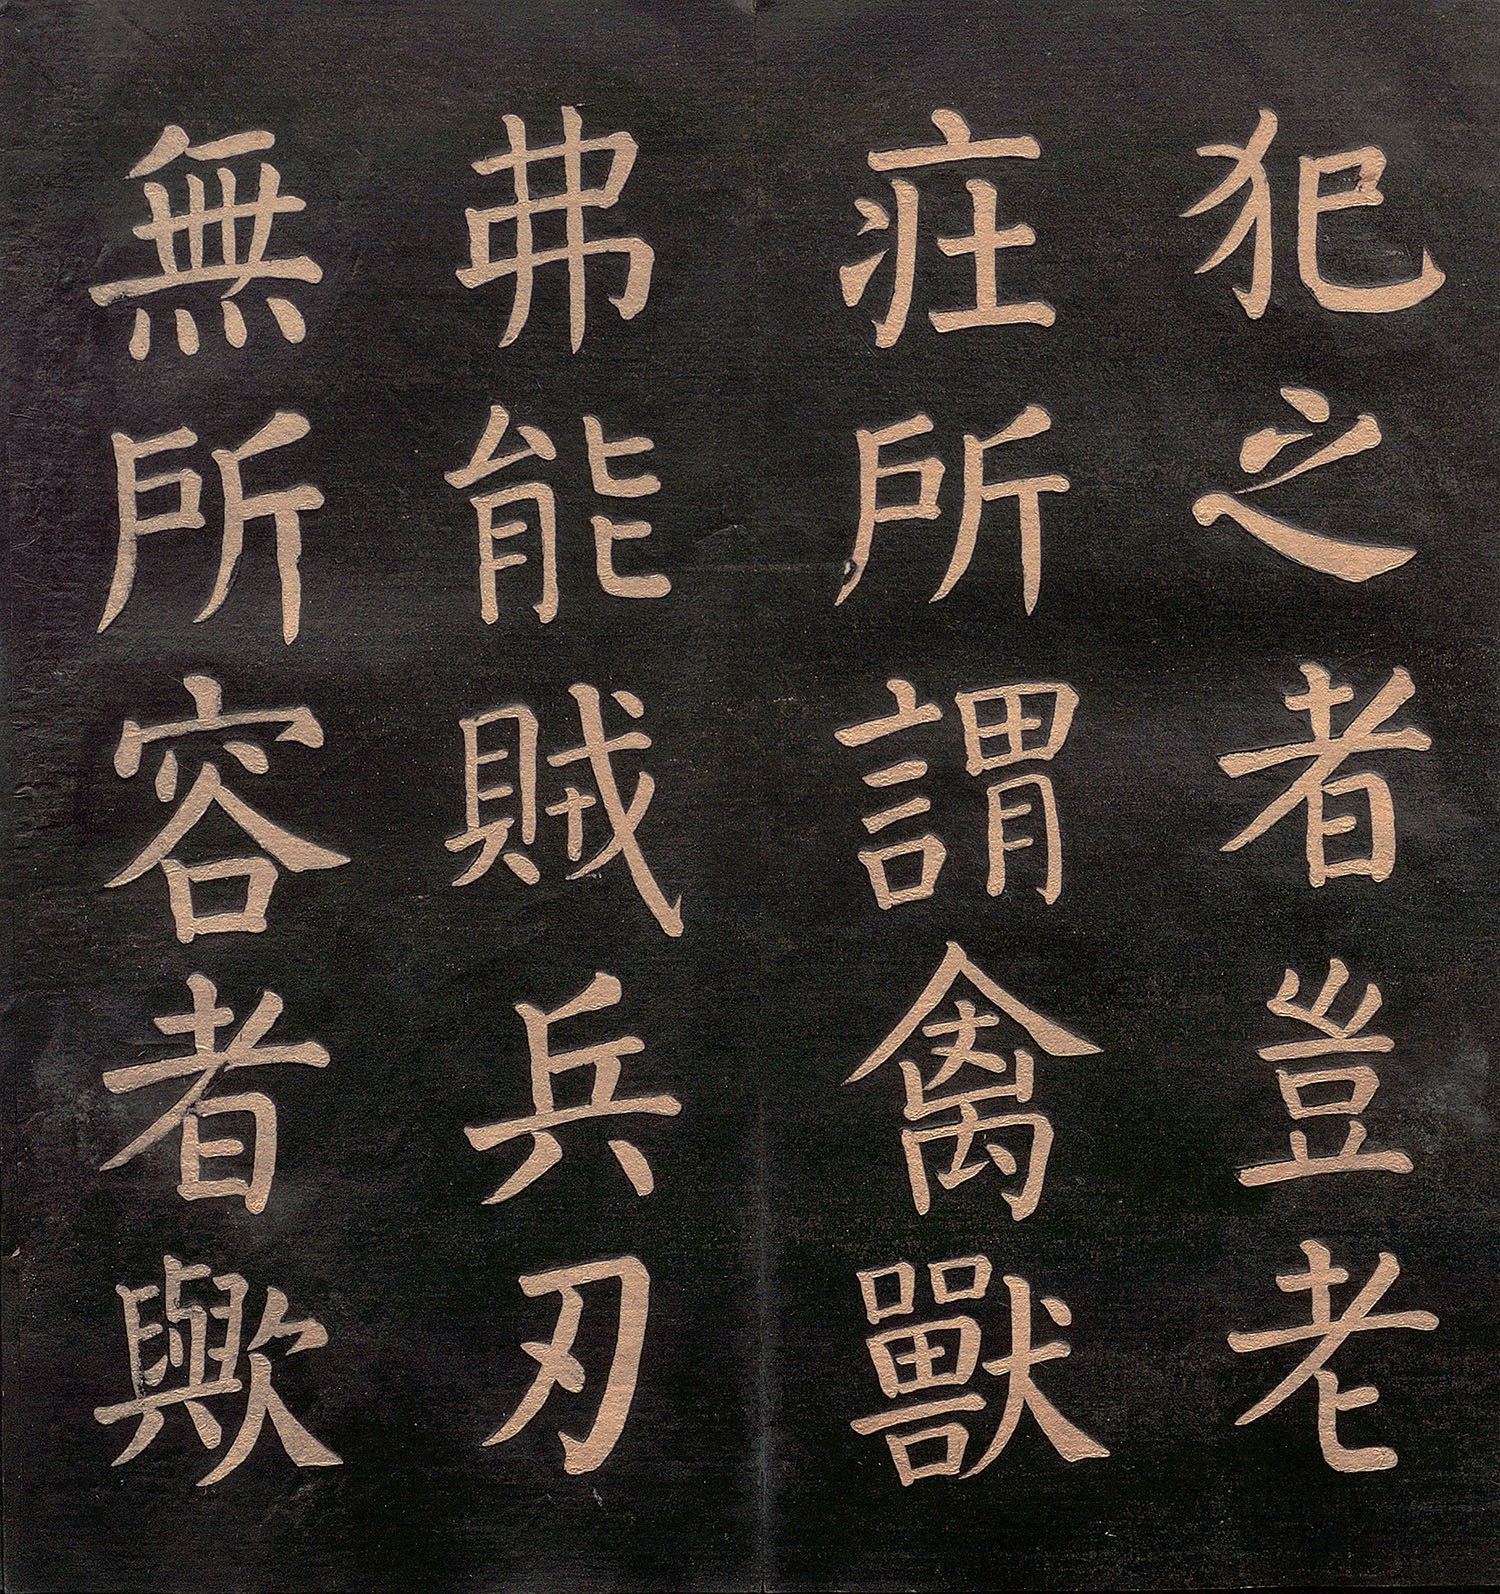 犯之者豈老
疘所謂禽獸
弗能賊兵刃
無所容者歟